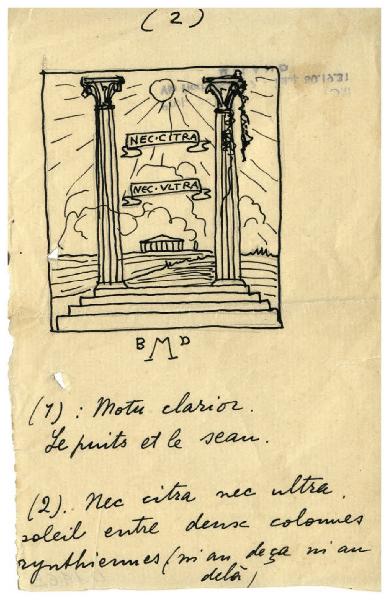 (2)
NEC•CITRA
NEC•VLTRA
B M D
(1) : Motu clarior.
Le puits et le seau.
(2). Nec citra nec ultra.
soleil entre deux colonnes
rynthiennes (ni au deça ni au
delà)